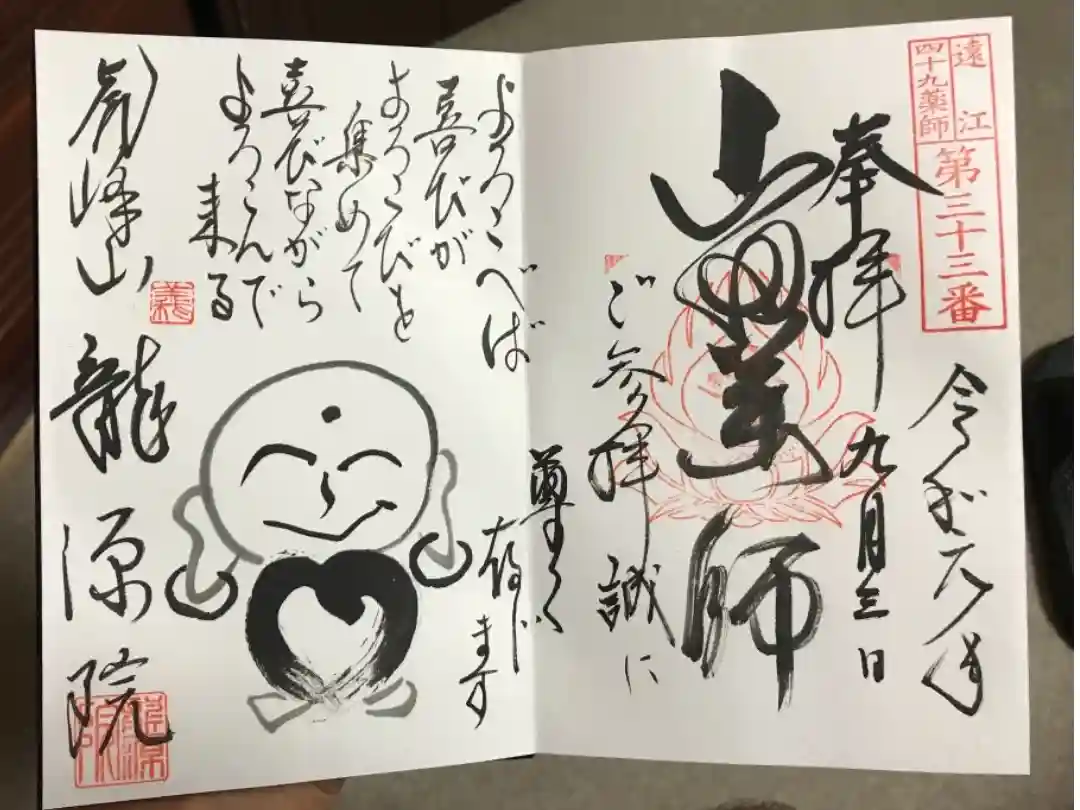 遠江
四十九薬師
第三十三番
令和元年
九月三日
奉拝
薬師
ご参拝誠に
尊く
存じます
よろこべば
喜びが
よろこびを
集めて
喜びながら
よろこんで
来る
峰山
龍源院